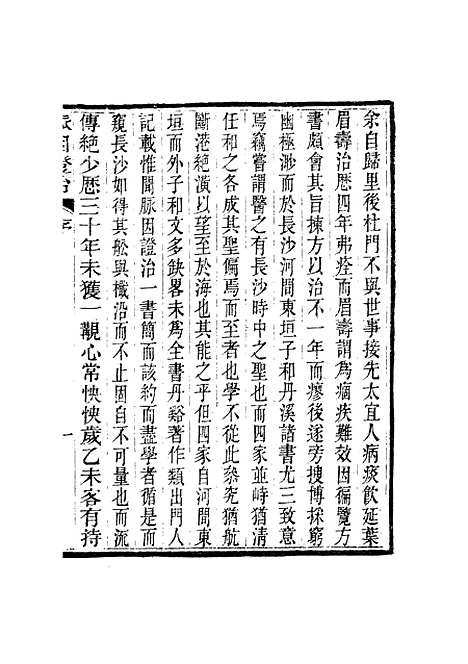 余自歸里後杜門不與世事接先太宜人病痰飲延葉
眉壽治歷四年弗痊而眉壽謂爲痼疾難效因徧覽方
書頗會其旨揀方以治不一年而瘳後遂旁搜博採窮
幽極渺而於長沙河間東垣子和丹溪諸書尤三致意
焉竊嘗謂醫之有長沙時中之聖也而四家並峙猶清
任和之各成其聖偏焉而至者也學不從此叅究猶航
斷港絶潢以望至於海也其能之乎但四家自河間東
垣而外子和文多缺畧未爲全書丹谿著作類出門人
記載惟聞脈因證治一書簡而該約而盡學者循是而
窺長沙如得其舩與檝沿而不止固自不可量也而流
傳絶少歷三十年未獲一觀心常怏怏歲乙未客有持
脈因證治
序
一